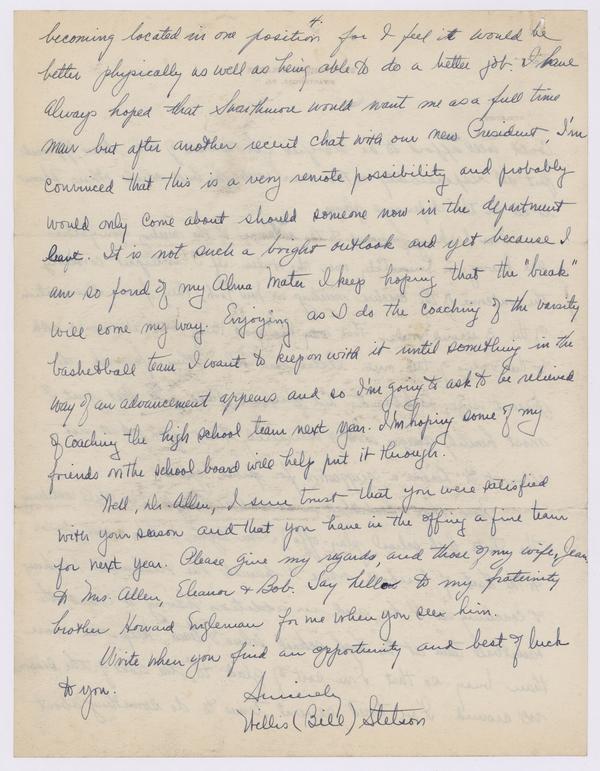 4.
becoming located in one position for I feel it would be
better physically as well as being able to do a better job. I have
always hoped that Swarthmore would want me as a full time
man but after another recent chat with our new President, I'm
convinced that this is a very remote possibility and probably
would only come about should someone now in the department
leave. It is not such a bright outlook and yet because I
am so fond of my Alma Mater I keep hoping that the "break"
will come my way. Enjoying as I do the coaching of the varsity
basketball team I want to keep on with it until something in the
way of an advancement appears and so I'm going to ask to be relieved
of coaching the high school team next year. I'm hoping some of my
friends on the school board will help put it through.
Well, Dr. Allen, I sure trust that you were satisfied
with your season and that you have in the offing a fine team
for next year. Please give my regards, and those of my wife, Jean
to Mrs. Allen, Eleanor & Bob. Say hello to my fraternity
brother Howard Engleman for me when you see him.
Write when you find an opportunity and best of luck
to you.
Sincerely
Willis (Bill) Stetson